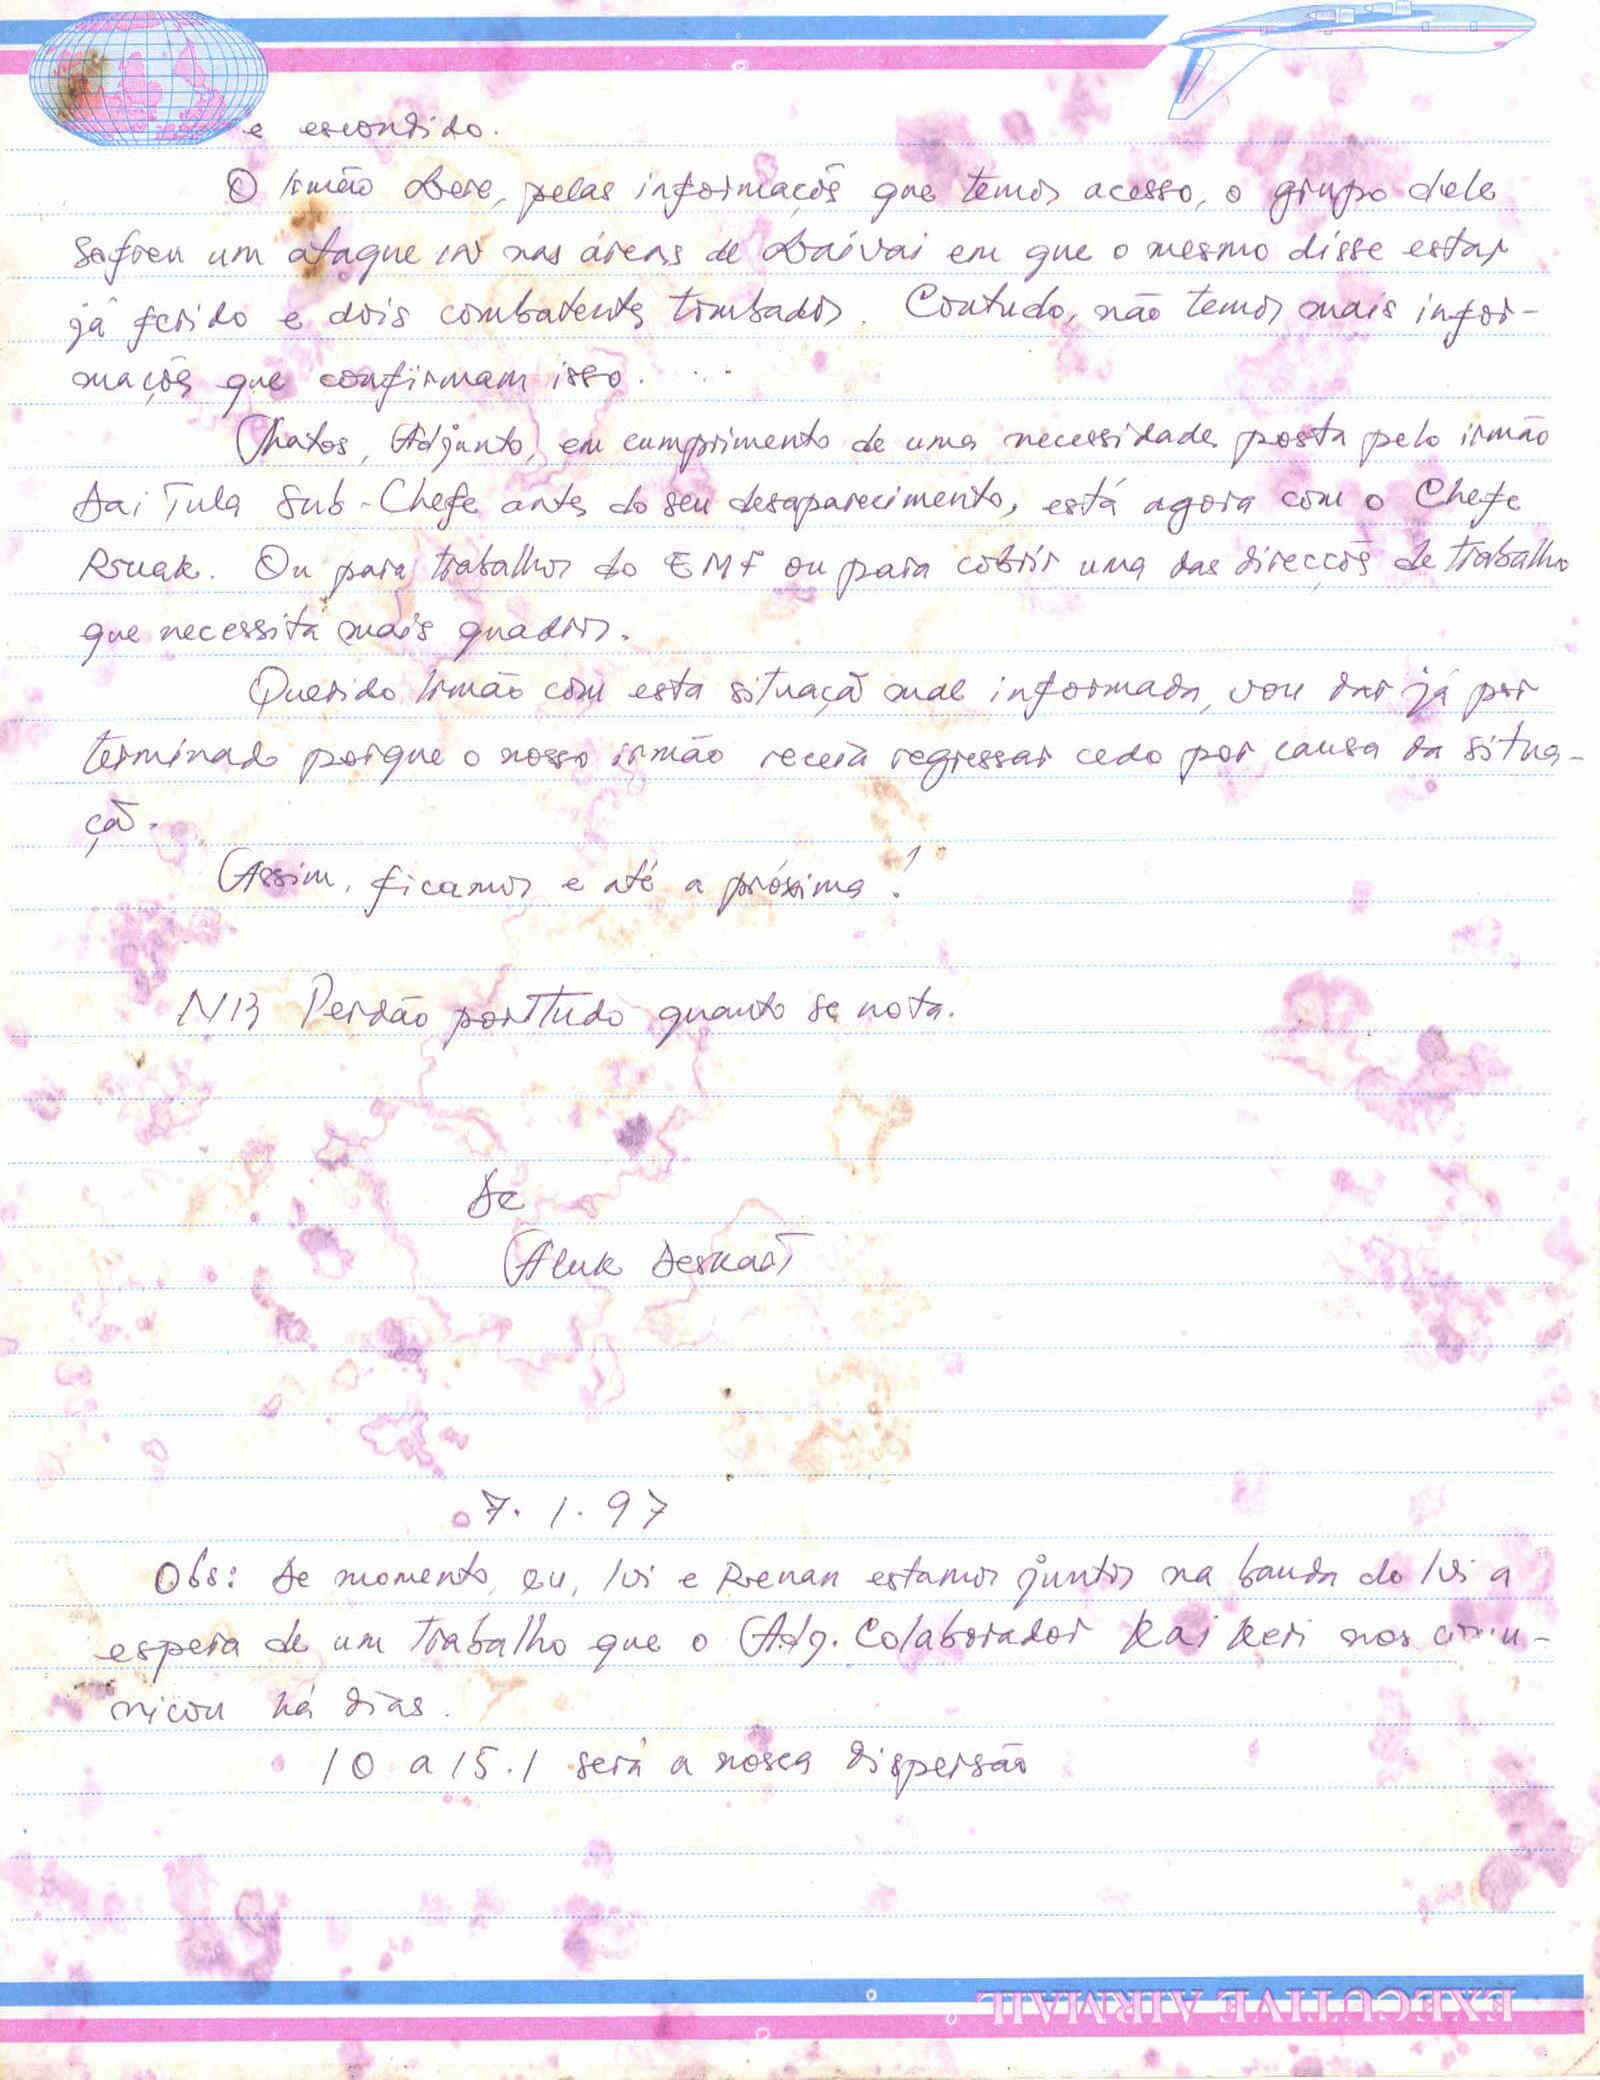 e escondido.
O Irmão Dere, pelas informaçõs que temos acesso, o grupo dele
sofreu um ataque in nas áreas de Daivai em que o mesmo disse estar
já ferido e dois combatentes tombados. Contudo, não temos mais infor-
maçõs que confirmam isso.
Matos, Adjunto, em cumprimento de uma necessidade posta pelo irmão
Dai Tula Sub-Chefe antes do seu desaparecimento, está agora com o Chefe
Ruak. Ou para trabalhos do EMF ou para cobrir uma das direcçõs de trabalho
que necessita mais quadros.
Querido Irmão com esta situaçã mal informada, vou dar já por
terminado porque o nosso irmão receia regressar cedo por causa da situa-
çã.
Assim, ficamos e até a próxima!
NB Perdão porttudo quanto se nota.
De
Aluk Deskart
7.1.97
Obs: De momento, eu, Ivi e Renan estamos juntos na banda do Ivi a
espera de um trabalho que o Adj. Colaborador Kai Keri nos comu-
nicou há dias.
10 a 15.1 será a nossa dispersão
EXECUTIVE AIRMAIL